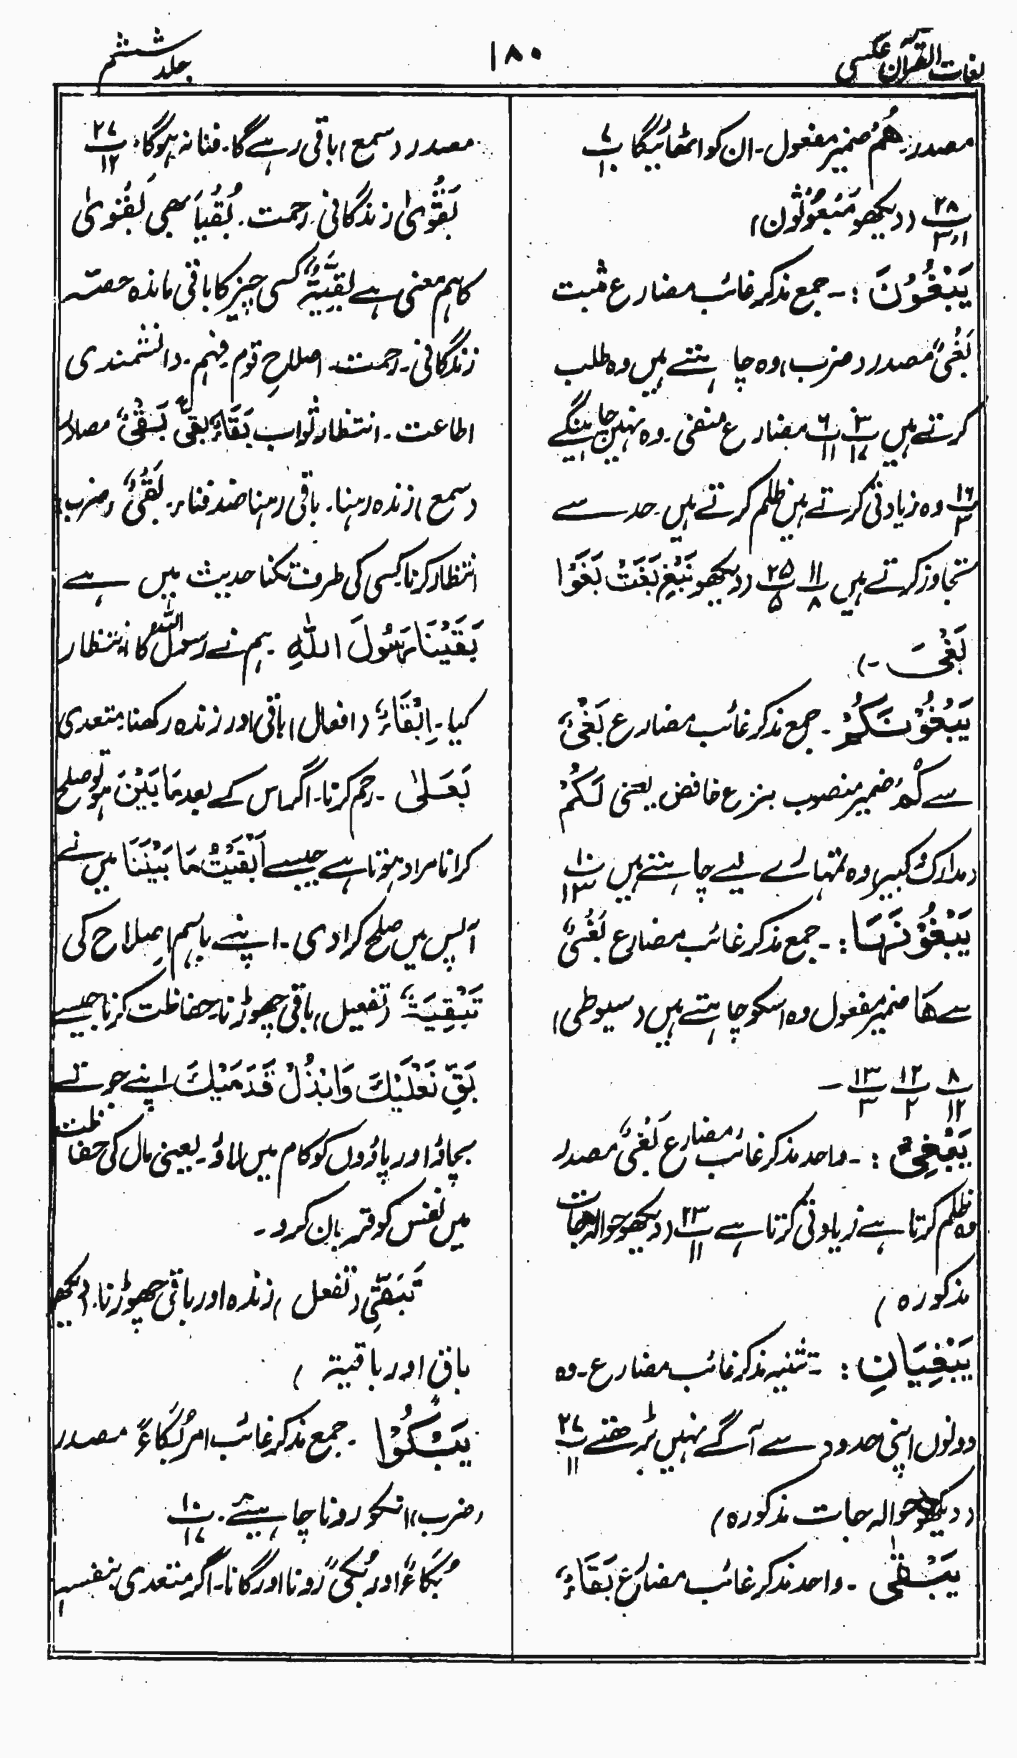 لغات القرآن عکسی
۱۸۰
جلد ششم
مصدر۔ ھُمْ ضمیر مفعول۔ ان کو اٹھائیگا پ ۷/۱۰
پ ۲۸/۱،۳ (دیکھو مَبْعُوْثُون)
یَبْغُوْنَ :۔ جمع مذکر غائب مضارع مثبت
بَغْیٌ مصدر (ضرب) وہ چاہتے ہیں وہ طلب
کرتے ہیں پ ۳/۱۷ پ ۶/۱۱ مضارع منفی۔ وہ نہیں چاہینگے
پ ۱۶/۳ وہ زیادتی کرتے ہیں ظلم کرتے ہیں۔ حد سے
تجاوز کرتے ہیں پ ۱۱/۸ پ ۲۵/۵ (دیکھو نَبْغِ بَغَتْ بَغَوْا
بَغْیَ ۔)
یَبْغُوْنَکُمْ ۔ جمع مذکر غائب مضارع بَغْیٌ
سے کُمْ ضمیر منصوب بنزع خافض یعنی لَکُمْ
(مدارک و کبیر) وہ تمہارے لیے چاہتے ہیں پ ۱۰/۱۳
یَبْغُوْنَہَا :۔ جمع مذکر غائب مضارع بَغْیٌ
سے ھَا ضمیر مفعول وہ اسکو چاہتے ہیں (سیوطی)
پ ۸/۱۲ پ ۱۲/۲ پ ۱۳/۳ ۔
یَبْغِیْ :۔ واحد مذکر غائب مضارع بَغْیٌ مصدر
وہ ظلم کرتا ہے زیادتی کرتا ہے پ ۲۳/۱۱ (دیکھو حوالہ جات
مذکورہ)
یَبْغِیَانِ :۔ تثنیہ مذکر غائب مضارع۔ وہ
دونوں اپنی حدود سے آگے نہیں بڑھتے پ ۲۷/۱۱
(دیکھو حوالہ جات مذکورہ)
یَبْقٰی ۔ واحد مذکر غائب مضارع بَقَاءٌ
مصدر (سمع) باقی رہے گا۔ فنا نہ ہوگا پ ۲۷/۱۲
بَقْوٰی زندگانی رحمت۔ بُقْیَا بھی بَقْوٰی
کا ہم معنی ہے بَقِیَّۃٌ کسی چیز کا باقی ماندہ حصّہ
زندگانی۔ رحمت۔ اصلاحِ قوم۔ فہم۔ دانشمندی
اطاعت۔ انتظارِ ثواب بَقَاءٌ بَقًی بَقْیٌ مصادر
(سمع) زندہ رہنا۔ باقی رہنا ضد فناء۔ بَقْیٌ (ضرب)
انتظار کرنا کسی کی طرف تکنا حدیث میں ہے
بَقَیْنَا رَسُوْلَ اللّٰہِ ہم نے رسول اللہ کا انتظار
کیا۔ اِبْقَاءٌ (افعال) باقی اور زندہ رکھنا متعدی
بَعَلٰی ۔ رحم کرنا۔ اگر اس کے بعد مَا بَیْنَ ہو تو صلح
کرانا مراد ہوتا ہے جیسے اَبْقَیْتُ مَا بَیْنَنَا میں نے
آپس میں صلح کرا دی۔ اپنے باہم اصلاح کی
تَبْقِیَۃٌ (تفعیل) باقی چھوڑنا۔ حفاظت کرنا جیسے
بَقِّ نَعْلَیْکَ وَابْذُلْ قَدَمَیْکَ اپنے جوتے
بچاؤ اور پاؤں کو کام میں لاؤ۔ یعنی مال کی حفاظت
میں نفس کو قربان کرو۔
تَبَقِّی (تفعل) زندہ اور باقی چھوڑنا۔ (دیکھو
باق اور باقیۃ)
یَبْکُوْا ۔ جمع مذکر غائب امر بُکَاءٌ مصدر
(ضرب) انکو رونا چاہیئے۔ پ ۱۰/۱۷
بُکَاءٌ اور بُکًی رونا اور گانا۔ اگر متعدی بنفسہٖ